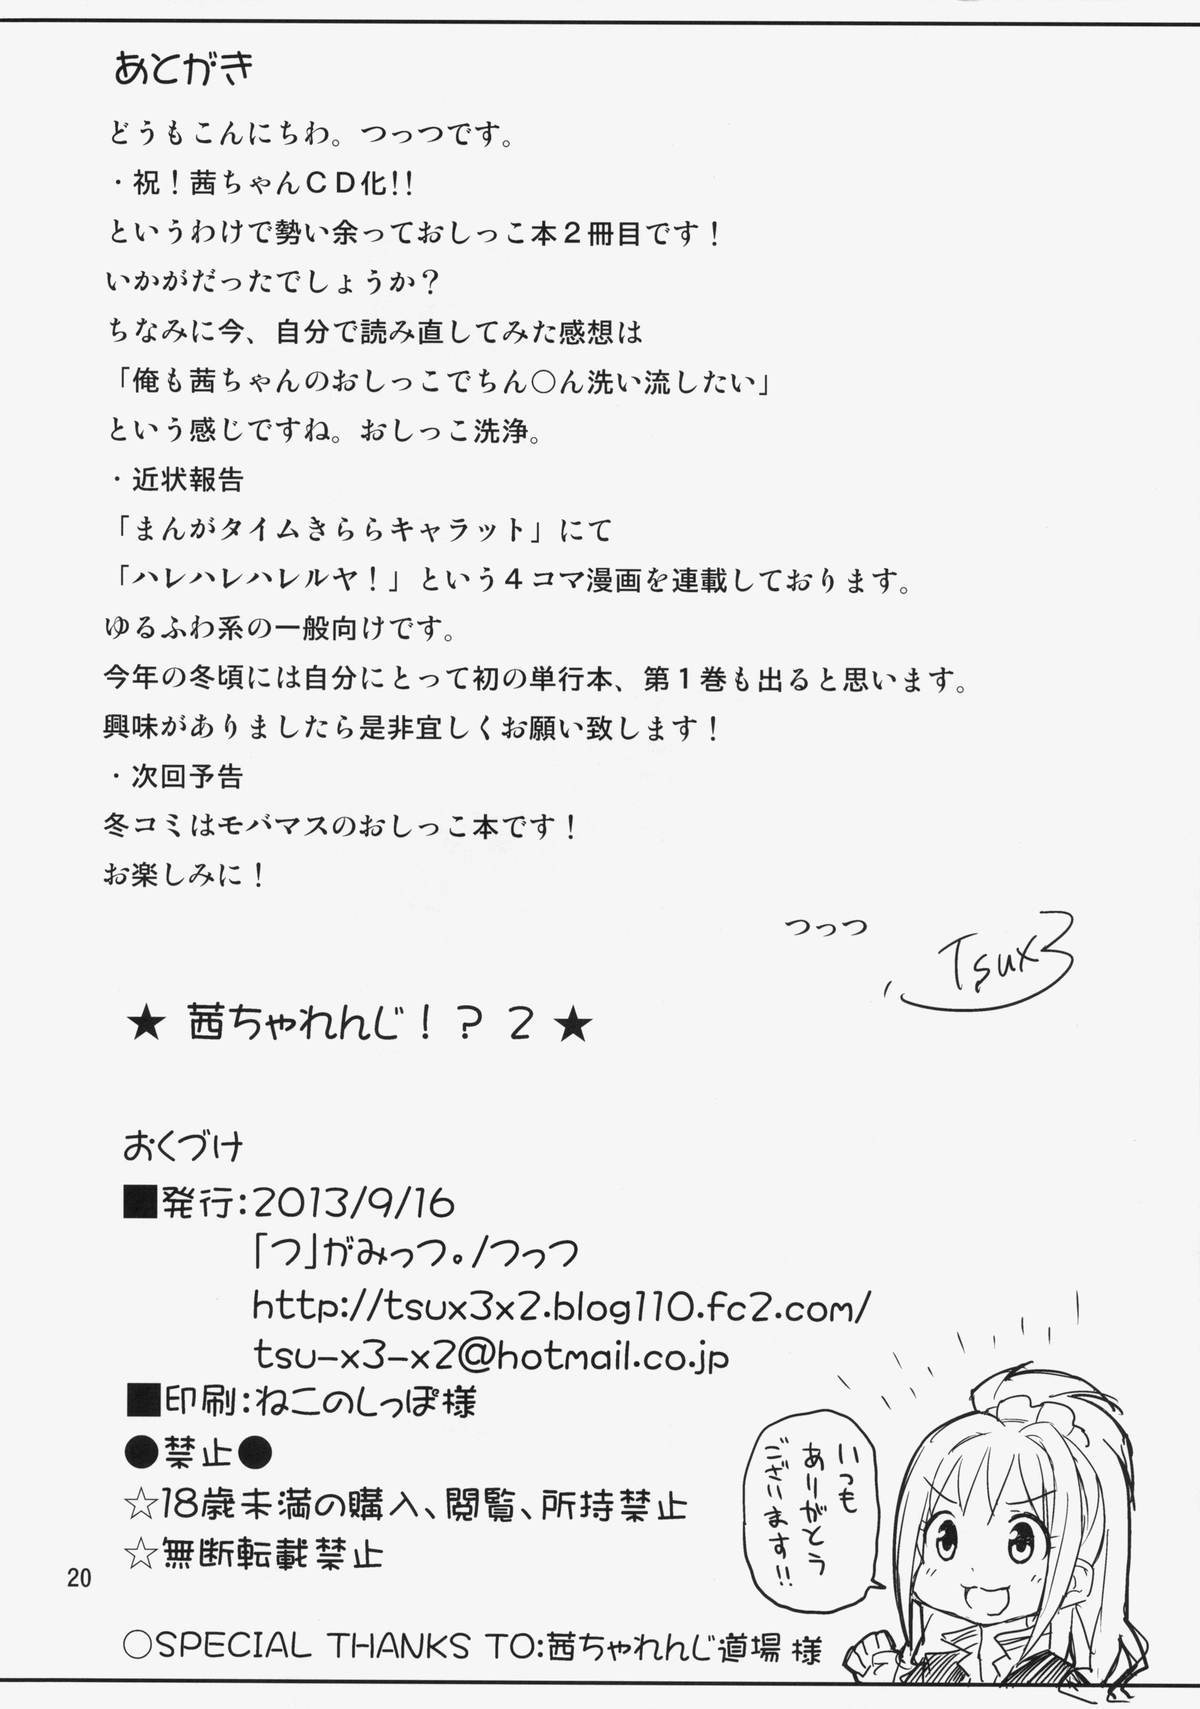 あとがき
どうもこんにちわ。つっつです。
・祝！茜ちゃんＣＤ化!!
というわけで勢い余っておしっこ本２冊目です！
いかがだったでしょうか？
ちなみに今、自分で読み直してみた感想は
「俺も茜ちゃんのおしっこでちん○ん洗い流したい」
という感じですね。おしっこ洗浄。
・近状報告
「まんがタイムきららキャラット」にて
「ハレハレハレルヤ！」という４コマ漫画を連載しております。
ゆるふわ系の一般向けです。
今年の冬頃には自分にとって初の単行本、第１巻も出ると思います。
興味がありましたら是非宜しくお願い致します！
・次回予告
冬コミはモバマスのおしっこ本です！
お楽しみに！
つっつ
Tsux3
★ 茜ちゃれんじ！？２ ★
おくづけ
■発行：2013/9/16
「つ」がみっつ。/つっつ
http://tsux3x2.blog110.fc2.com/
tsu-x3-x2@hotmail.co.jp
■印刷：ねこのしっぽ様
●禁止●
☆18歳未満の購入、閲覧、所持禁止
☆無断転載禁止
いつも
ありがとう
ございます!!
20
○SPECIAL THANKS TO：茜ちゃれんじ道場 様